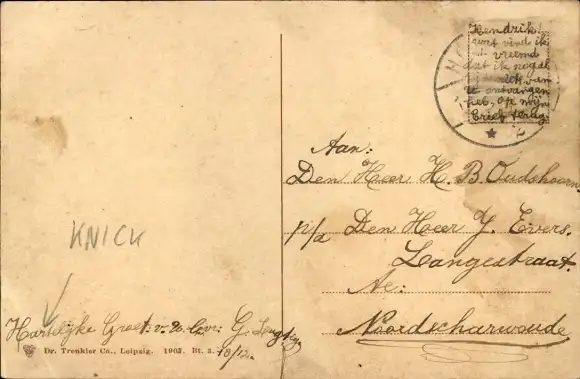 Hendrik!
wat vind ik
vreemd
dat ik nogal
van
te ontvangen
heb, op mijn
brief terug.
Aan:
Den Heer H. B. Oudshoorn
p/a Den Heer J. Evers.
Langestraat.
Te:
Noordscharwoude
KNICK
Hartelijke Groet. v. uw Gvr: G.
18/12.
Dr. Trenkler Co., Leipzig. 1902. Bt. 3.